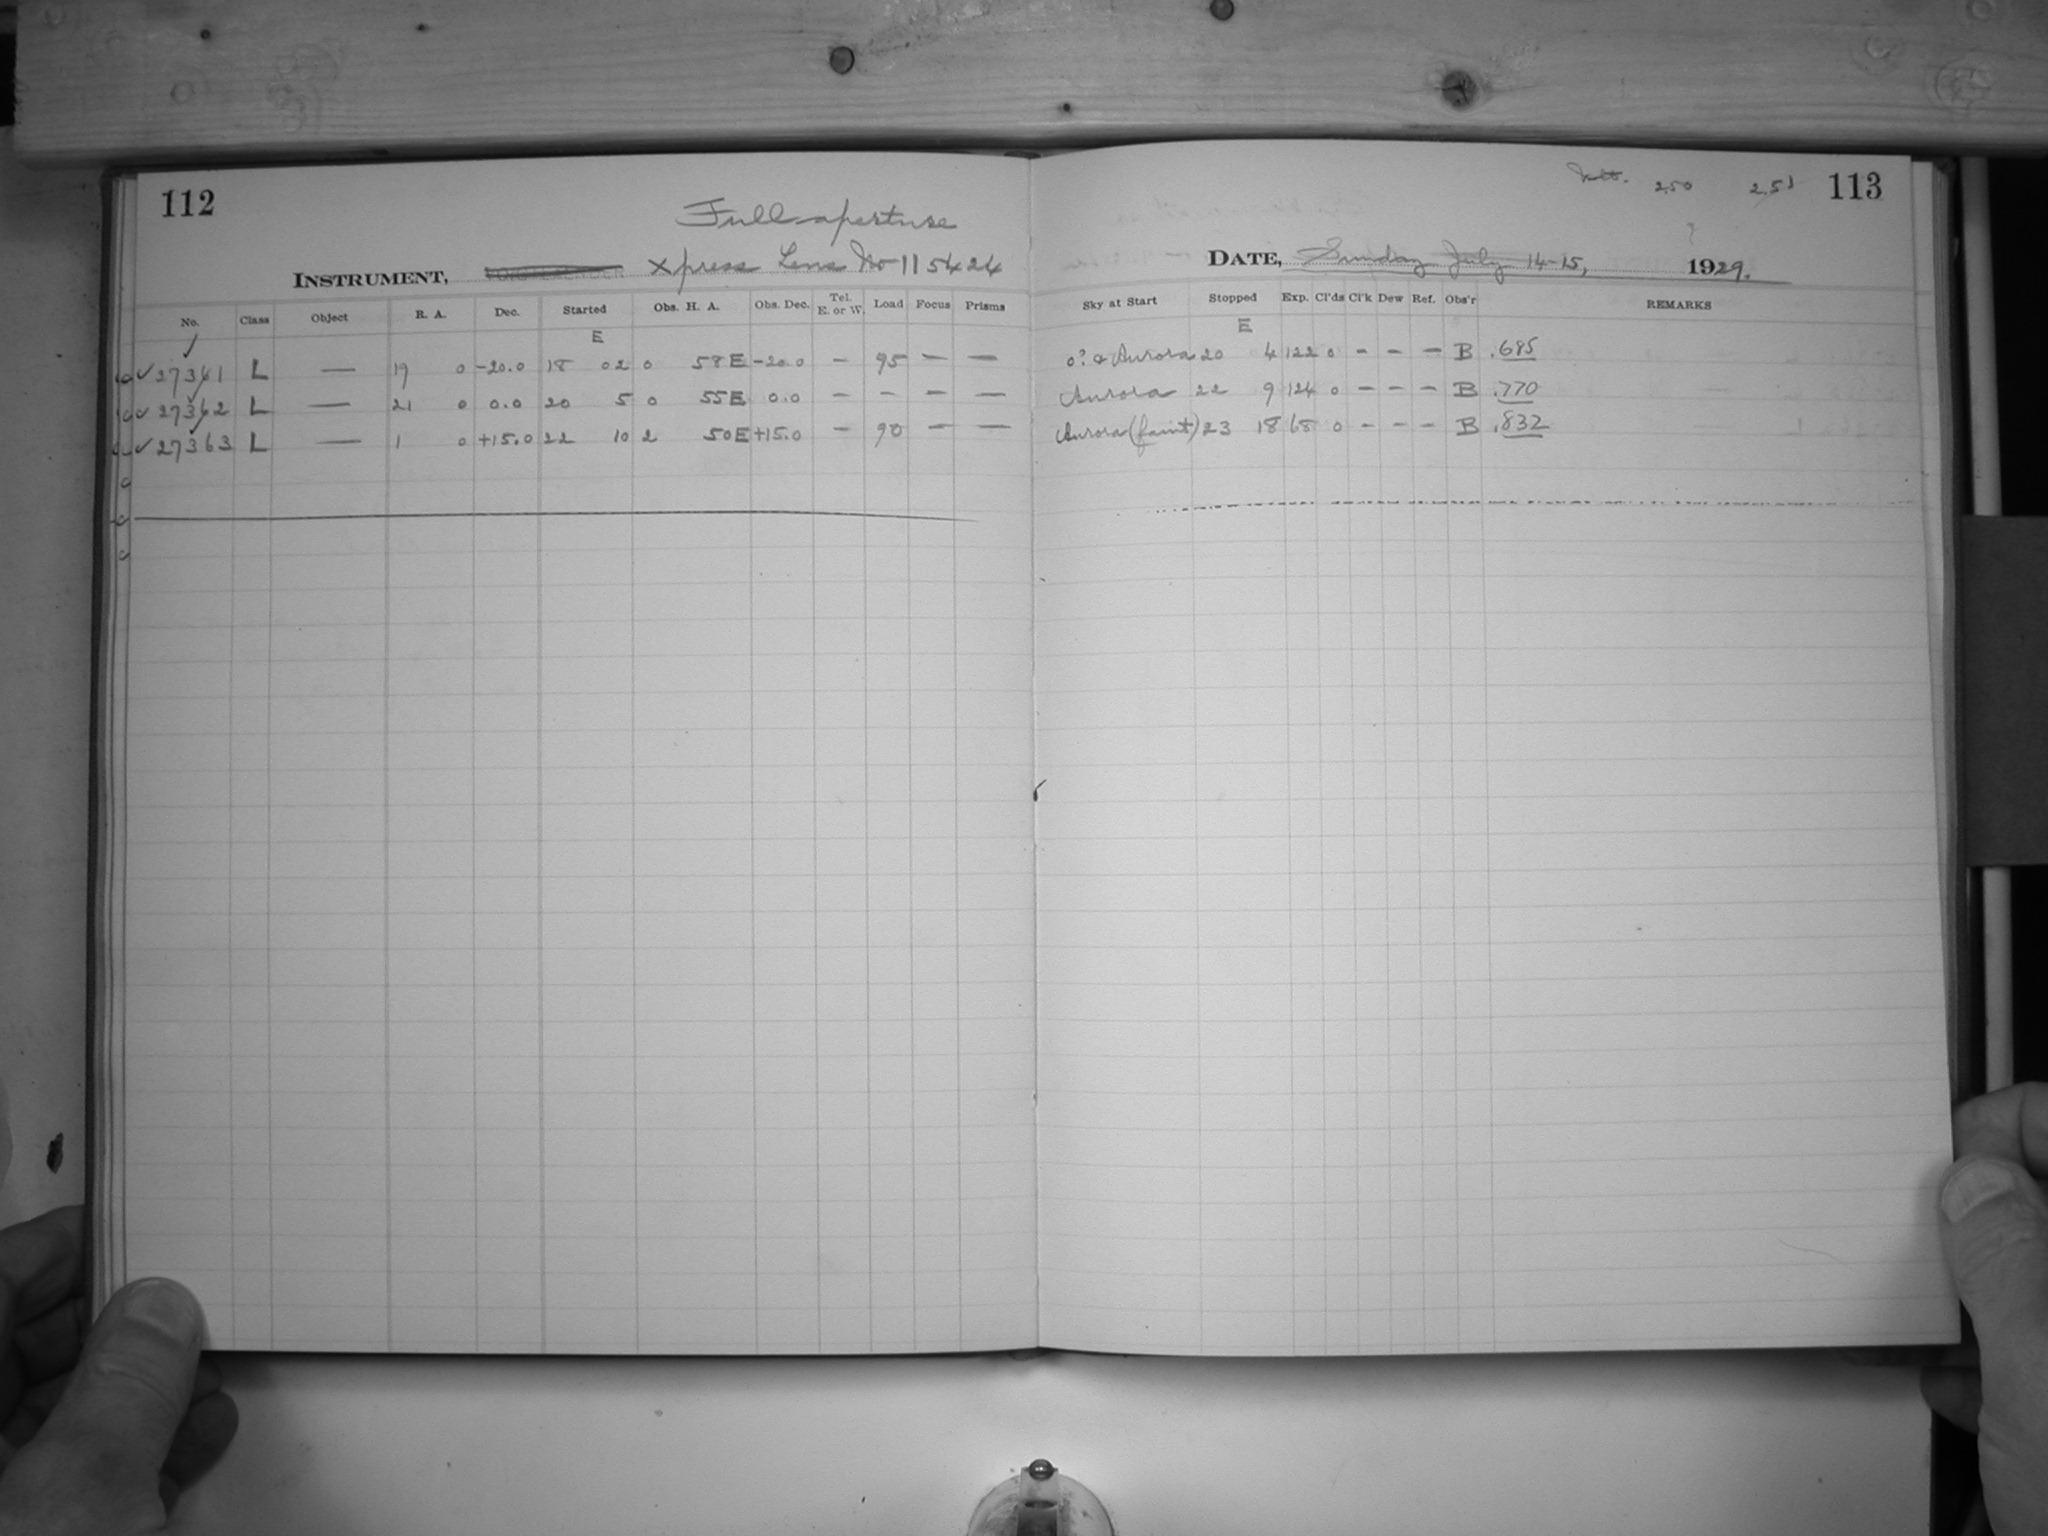 112
Full aperture
INSTRUMENT, Xpress Lens No 115424
No. Class Object R. A. Dec. Started Obs. H. A. Obs. Dec. Tel. E. or W. Load Focus Prisms
E
✓27361 L — 19 0 -20.0 18 02 0 58E -20.0 — 95 — —
✓27362 L — 21 0 0.0 20 5 0 55E 0.0 — — — —
✓27363 L — 1 0 +15.0 22 10 2 50E +15.0 — 90 — —
250 251 113
DATE, Sunday July 14-15, 1929.
Sky at Start Stopped Exp. Cl'ds Cl'k Dew Ref. Obs'r REMARKS
E
0? & Aurora 20 4 122 0 — — — B .685
Aurora 22 9 124 0 — — — B .770
Aurora (faint) 23 18 68 0 — — — B .832